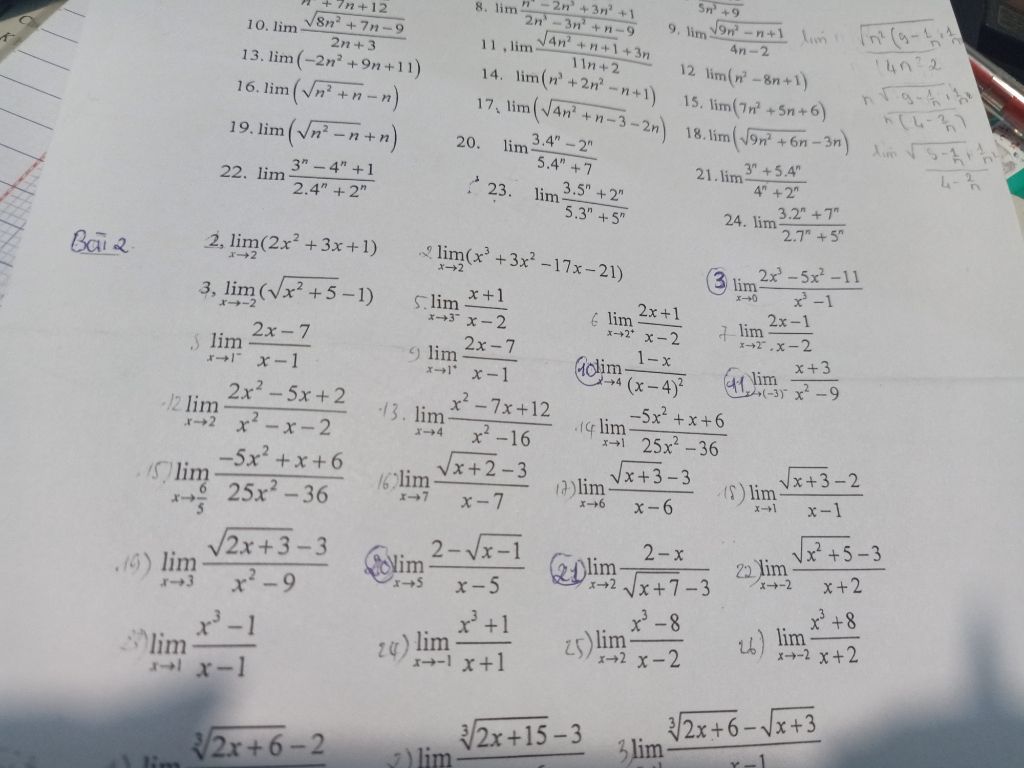 n² + 7n + 12
8. lim (n⁴ − 2n³ + 3n² + 1)/(2n³ − 3n² + n − 9)
5n³ + 9
10. lim √(8n² + 7n − 9)/(2n + 3)
11, lim (√(4n² + n + 1) + 3n)/(11n + 2)
9. lim √(9n² − n + 1)/(4n − 2)
13. lim(−2n² + 9n + 11)
14. lim(n³ + 2n² − n + 1)
12 lim(n² − 8n + 1)
16. lim(√(n² + n) − n)
17. lim(√(4n² + n − 3) − 2n)
15. lim(7n² + 5n + 6)
19. lim(√(n² − n) + n)
20. lim (3.4ⁿ − 2ⁿ)/(5.4ⁿ + 7)
18. lim(√(9n² + 6n) − 3n)
22. lim (3ⁿ − 4ⁿ + 1)/(2.4ⁿ + 2ⁿ)
23. lim (3.5ⁿ + 2ⁿ)/(5.3ⁿ + 5ⁿ)
21. lim (3ⁿ + 5.4ⁿ)/(4ⁿ + 2ⁿ)
24. lim (3.2ⁿ + 7ⁿ)/(2.7ⁿ + 5ⁿ)
Bài 2
2, lim x→2 (2x² + 3x + 1)
2 lim x→2 (x³ + 3x² − 17x − 21)
3 lim x→0 (2x³ − 5x² − 11)/(x³ − 1)
3, lim x→−2 (√(x² + 5) − 1)
5. lim x→3⁻ (x + 1)/(x − 2)
6 lim x→2⁺ (2x + 1)/(x − 2)
7 lim x→2⁻ (2x − 1)/(x − 2)
lim x→1⁻ (2x − 7)/(x − 1)
9) lim x→1⁺ (2x − 7)/(x − 1)
10 lim x→4 (1 − x)/(x − 4)²
11 lim x→(−3)⁻ (x + 3)/(x² − 9)
12 lim x→2 (2x² − 5x + 2)/(x² − x − 2)
13. lim x→4 (x² − 7x + 12)/(x² − 16)
14 lim x→1 (−5x² + x + 6)/(25x² − 36)
15) lim x→6/5 (−5x² + x + 6)/(25x² − 36)
16) lim x→7 (√(x + 2) − 3)/(x − 7)
17) lim x→6 (√(x + 3) − 3)/(x − 6)
18) lim x→1 (√(x + 3) − 2)/(x − 1)
19) lim x→3 (√(2x + 3) − 3)/(x² − 9)
20 lim x→5 (2 − √(x − 1))/(x − 5)
21 lim x→2 (2 − x)/(√(x + 7) − 3)
22) lim x→−2 (√(x² + 5) − 3)/(x + 2)
23) lim x→1 (x³ − 1)/(x − 1)
24) lim x→−1 (x³ + 1)/(x + 1)
25) lim x→2 (x³ − 8)/(x − 2)
26) lim x→−2 (x³ + 8)/(x + 2)
lim ∛(2x + 6) − 2
lim ∛(2x + 15) − 3
3) lim (∛(2x + 6) − √(x + 3))/(x − 1)